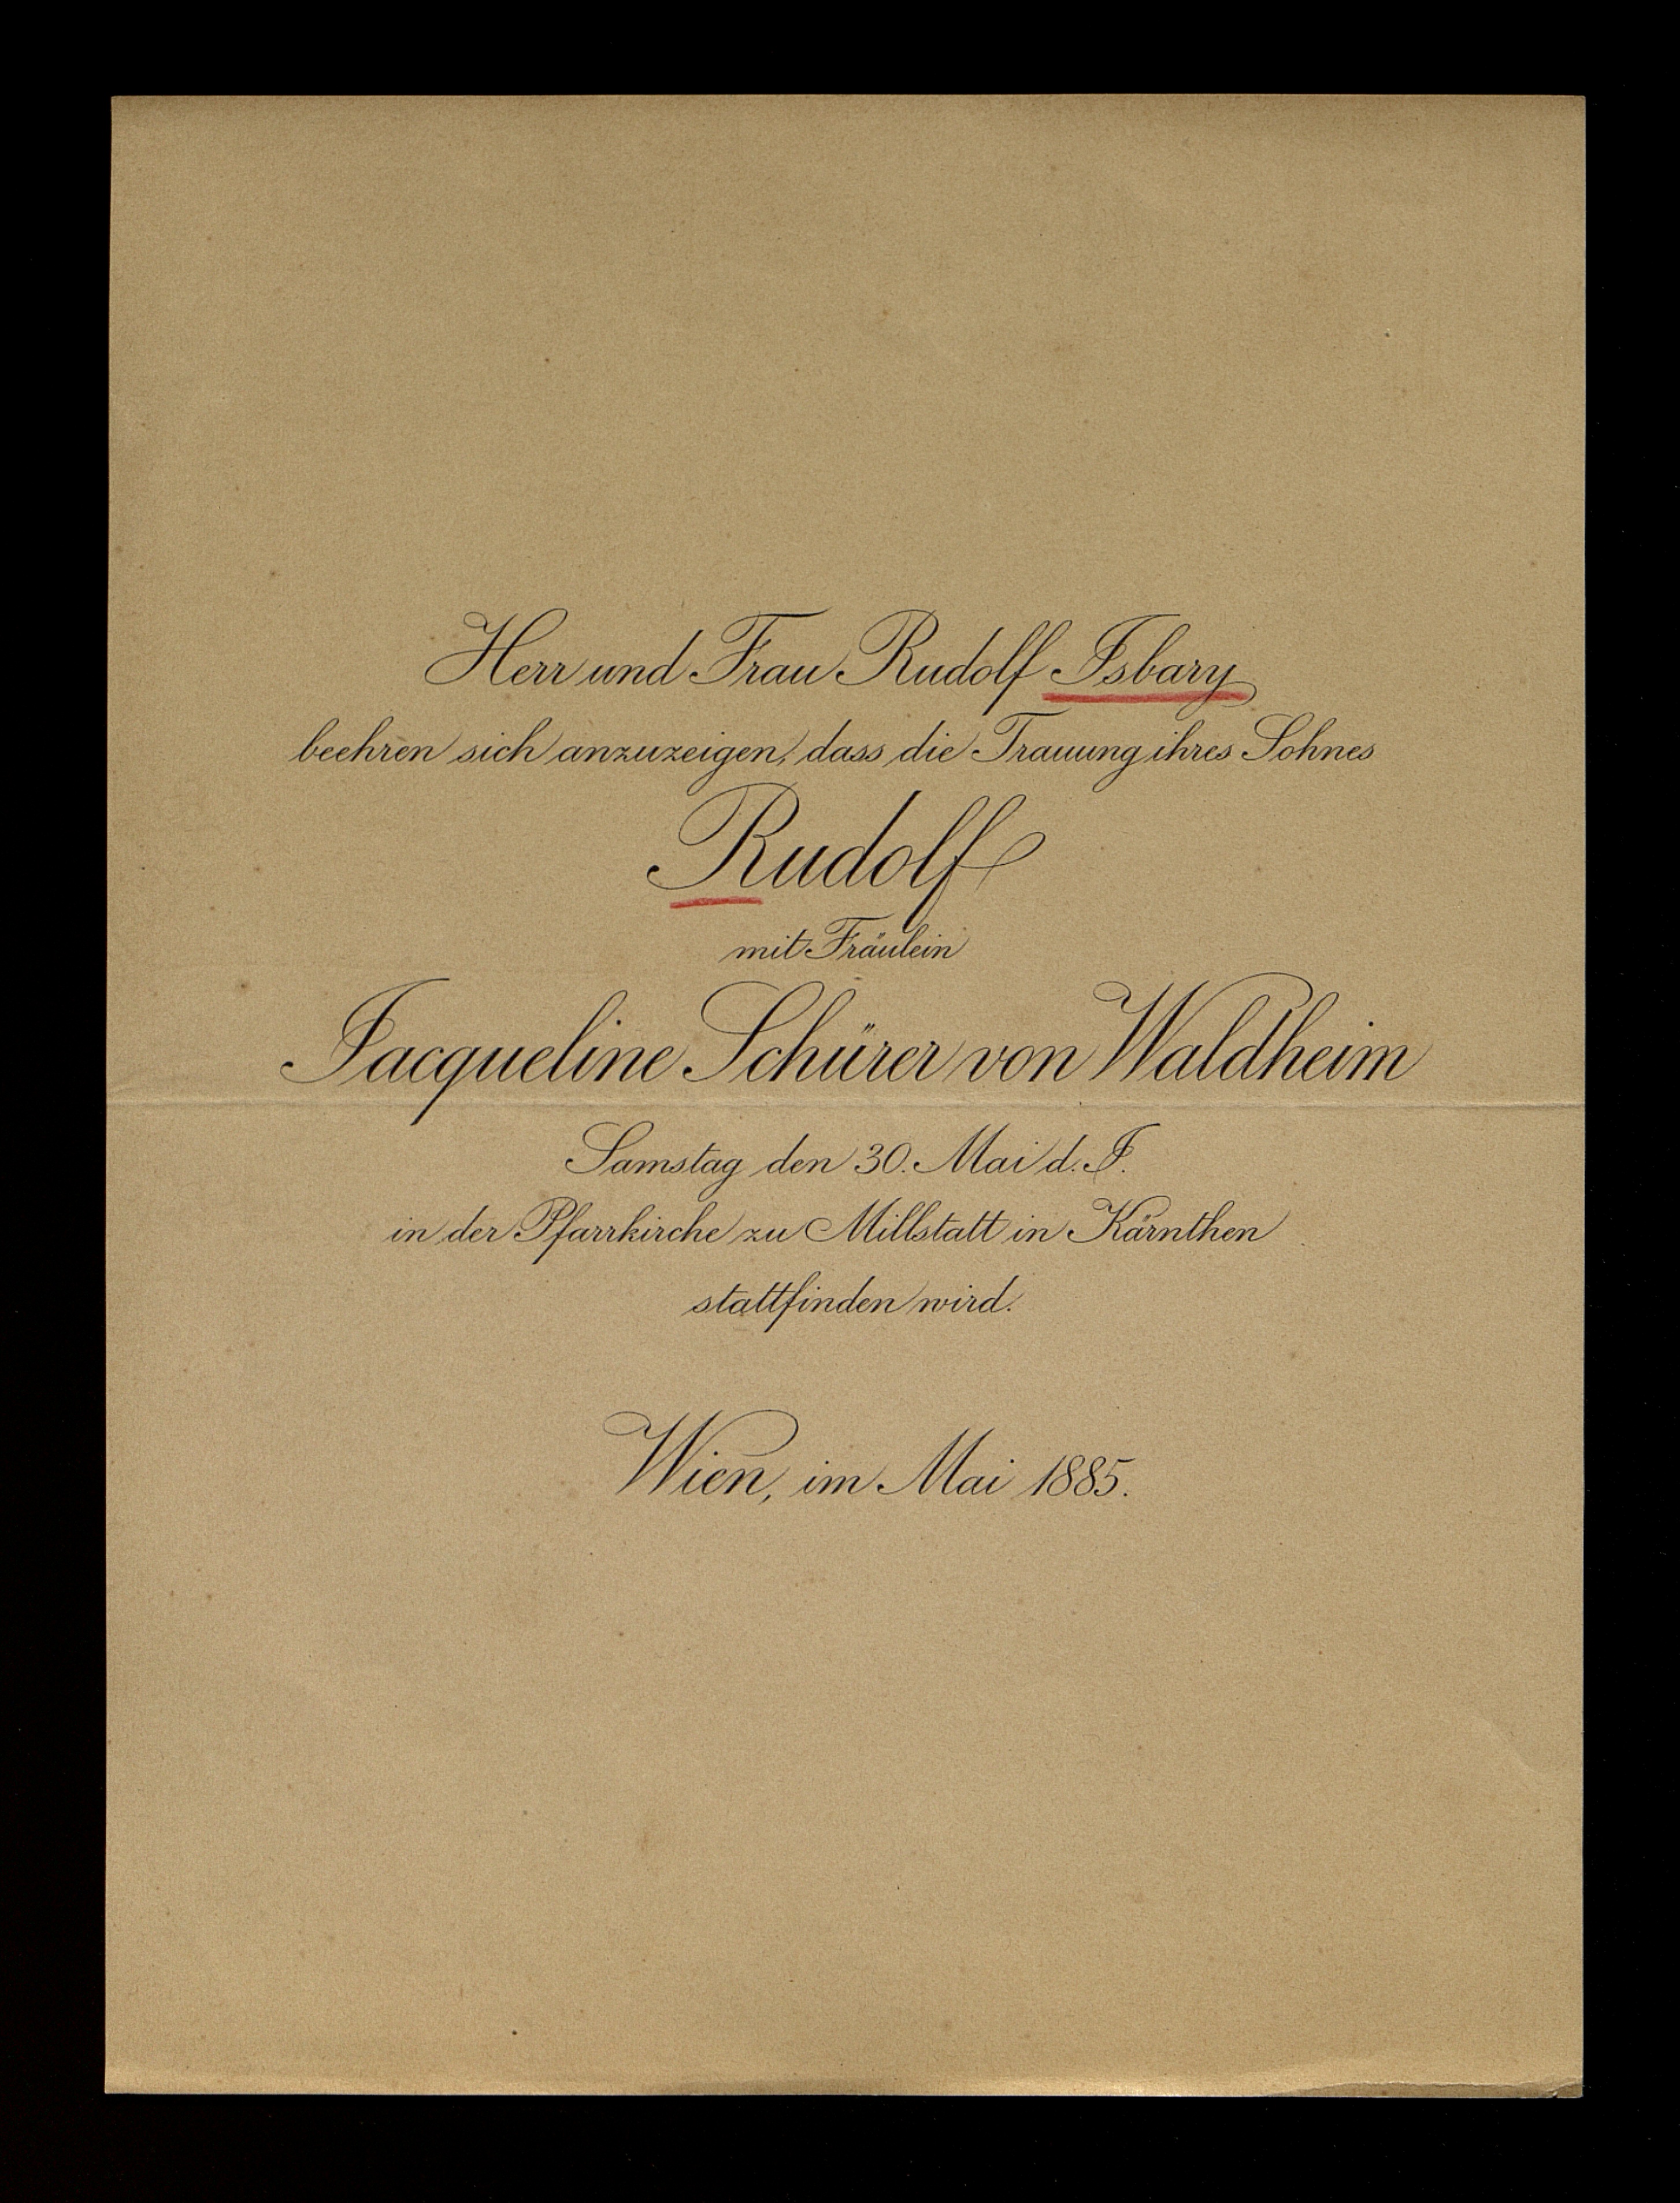 Herr und Frau Rudolf Isbary
beehren sich anzuzeigen, dass die Trauung ihres Sohnes
Rudolf
mit Fräulein
Jacqueline Schürer von Waldheim
Samstag den 30. Mai d. J.
in der Pfarrkirche zu Millstatt in Kärnthen
stattfinden wird.
Wien, im Mai 1885.